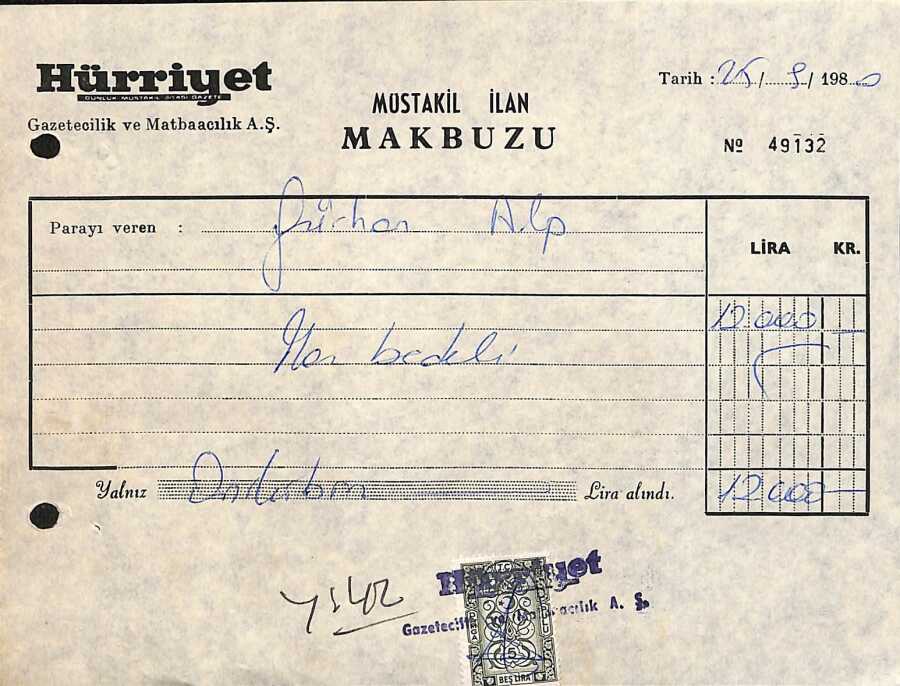 Hürriyet
GÜNLÜK MÜSTAKİL SİYASİ GAZETE
Gazetecilik ve Matbaacılık A.Ş.
MÜSTAKİL İLAN
MAKBUZU
Tarih : 25 / 9 / 1980
Nº 49132
Parayı veren : Gürhan Alp
LİRA KR.
İlan bedeli 12.000
Yalnız Onikibin Lira alındı. 12.000
Hürriyet
Gazetecilik ve Matbaacılık A. Ş.
T.C.
5
BEŞ LİRA